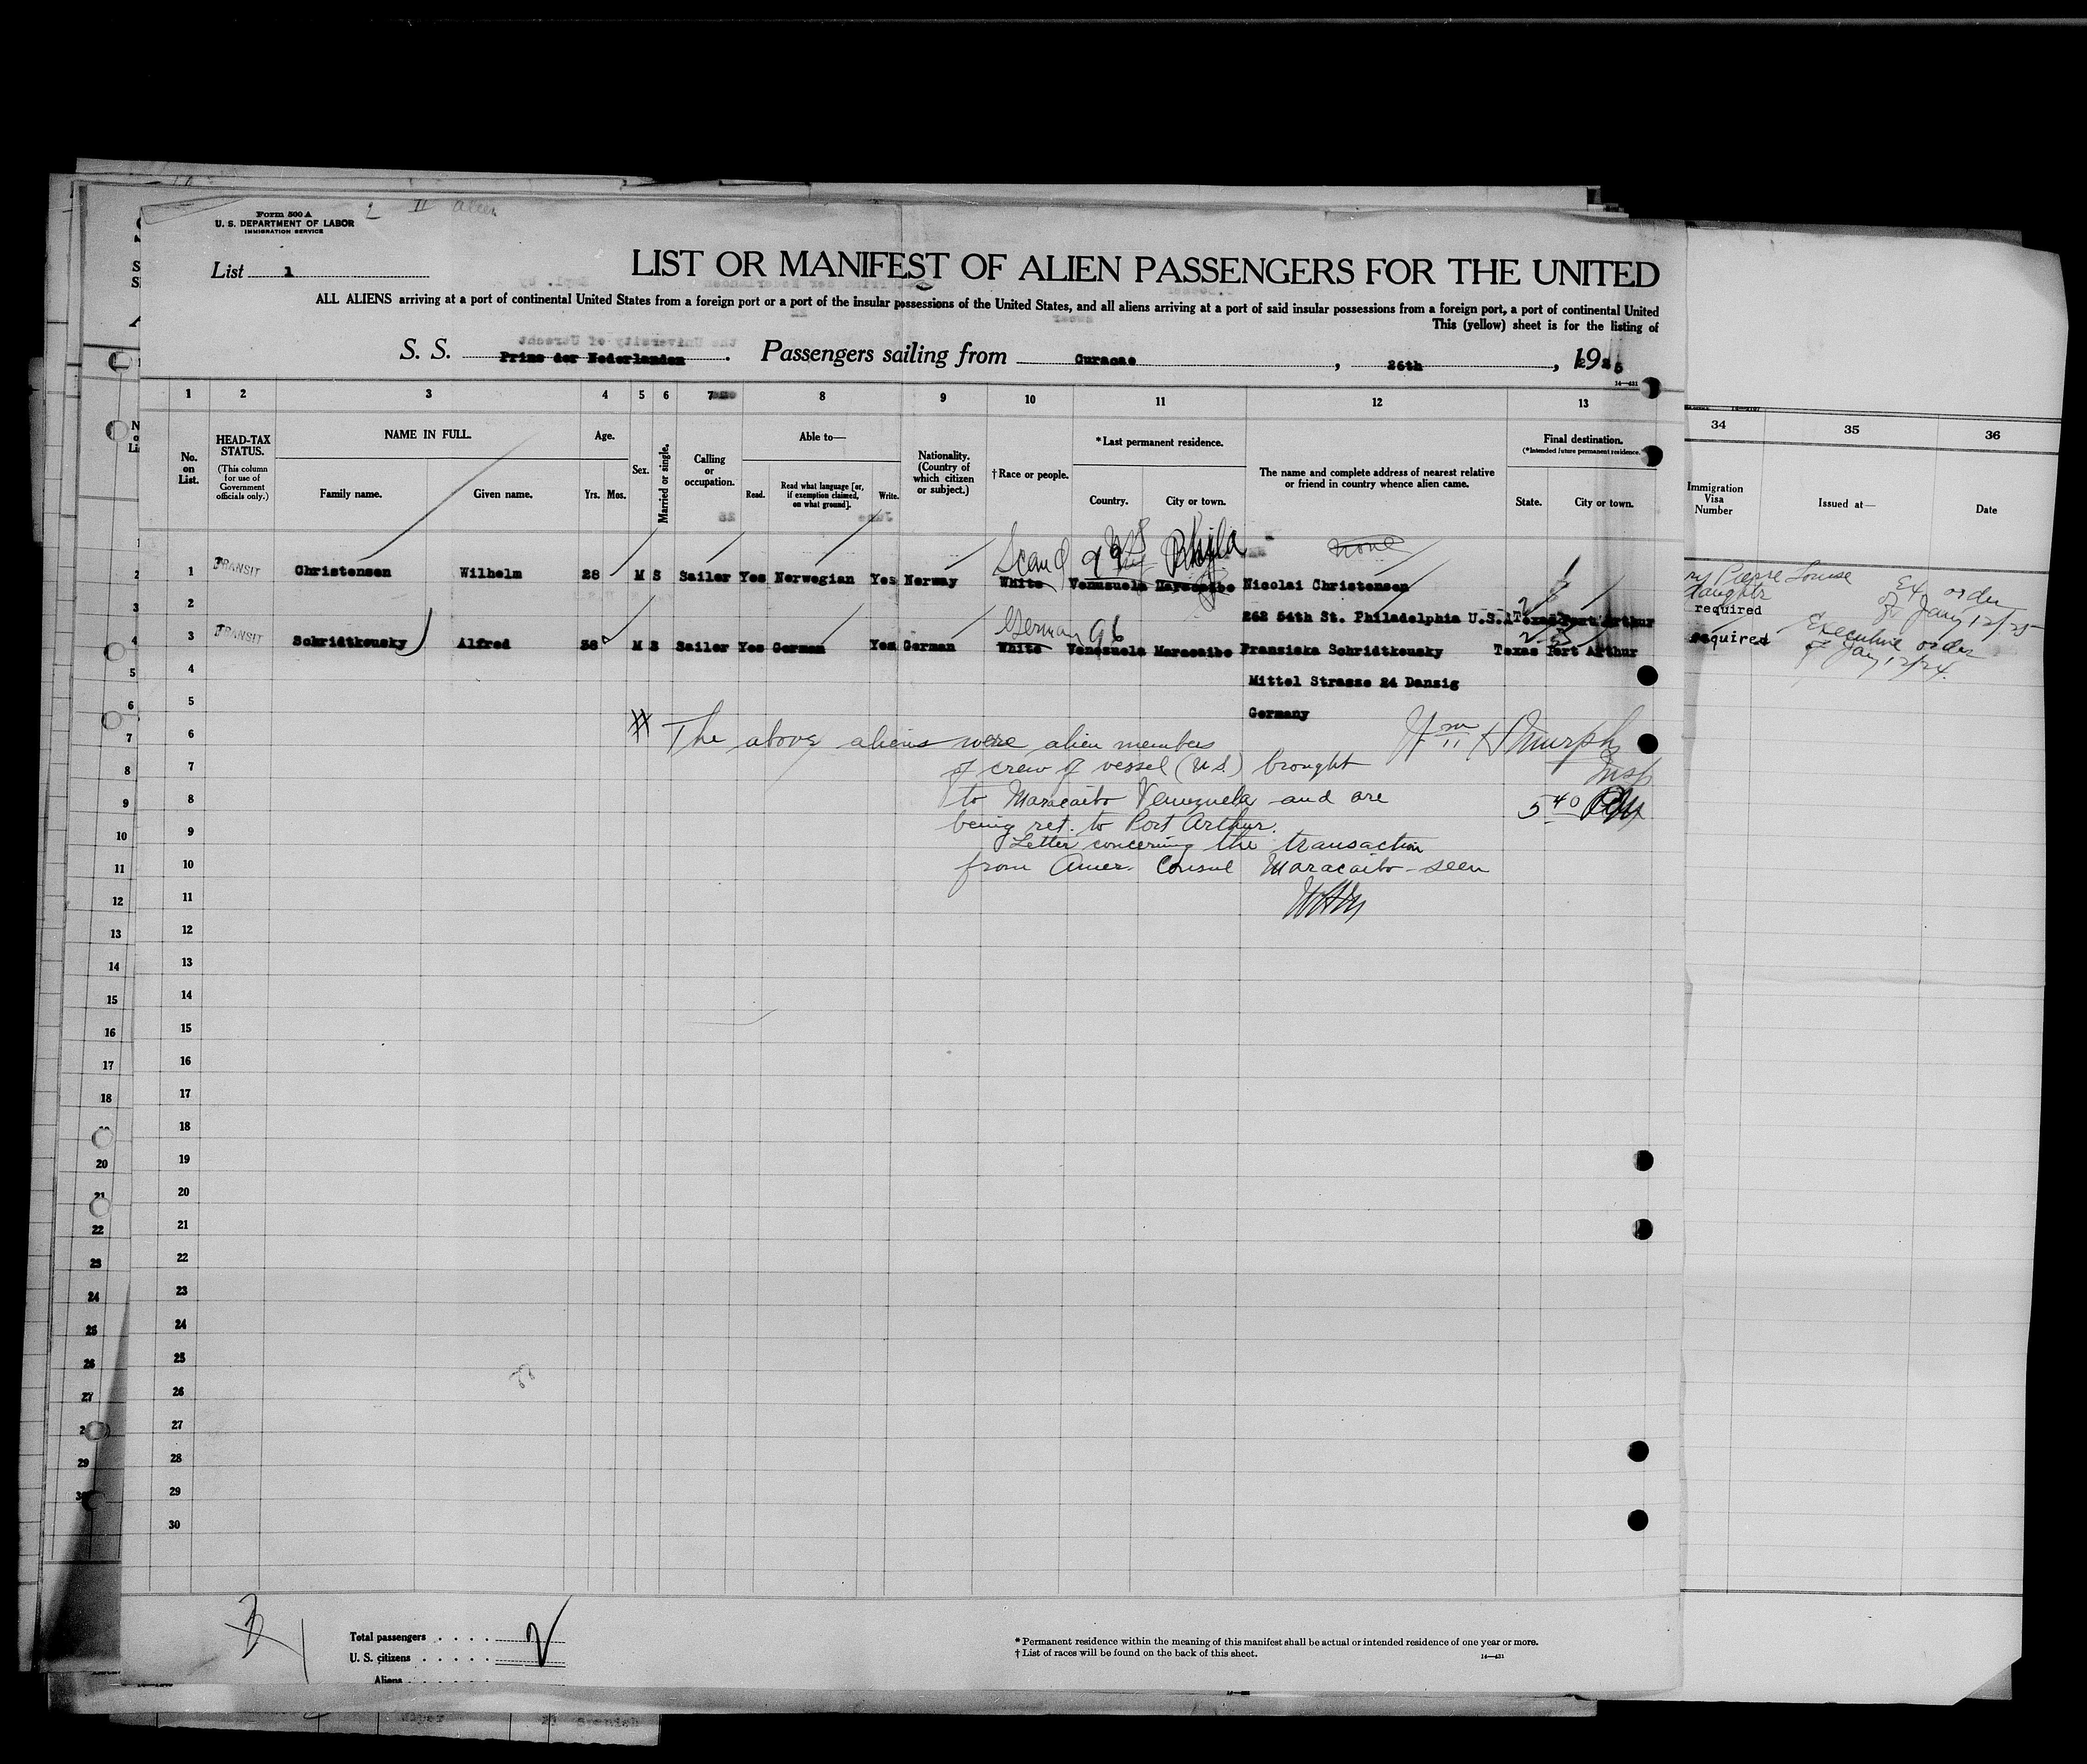 Form 500 A
U. S. DEPARTMENT OF LABOR
IMMIGRATION SERVICE
List 1
LIST OR MANIFEST OF ALIEN PASSENGERS FOR THE UNITED
ALL ALIENS arriving at a port of continental United States from a foreign port or a port of the insular possessions of the United States, and all aliens arriving at a port of said insular possessions from a foreign port, a port of continental United
This (yellow) sheet is for the listing of
S. S. Prins der Nederlanden. Passengers sailing from Curacao, 26th, 192
14—431
1 2 3 4 5 6 7 8 9 10 11 12 13
34 35 36
No. on List.
HEAD-TAX STATUS.
(This column for use of Government officials only.)
NAME IN FULL.
Family name. Given name.
Age.
Yrs. Mos.
Sex.
Married or single.
Calling or occupation.
Able to—
Read. Read what language [or, if exemption claimed, on what ground]. Write.
Nationality. (Country of which citizen or subject.)
†Race or people.
*Last permanent residence.
Country. City or town.
The name and complete address of nearest relative or friend in country whence alien came.
Final destination.
(*Intended future permanent residence.)
State. City or town.
Immigration Visa Number
Issued at—
Date
Scand Phila none
1 TRANSIT Christensen Wilhelm 28 M S Sailor Yes Norwegian Yes Norway White Venusuela Nicolai Christensen
2 262 54th St. Philadelphia U.S.A Texas Port Arthur
German
3 TRANSIT Schridtkousky Alfred 38 M S Sailor Yes German Yes German White Venesuela Maracaibo Fransiska Schridtkousky Texas Port Arthur
4 Mittel Strasse 24 Danzig
5 Germany
required
Ex order of Jany 12/25
required
Executive order of Jany 12/24.
The above aliens were alien members
of crew of vessel (U.S.) brought
to Maracaibo Venezuela and are
being ret. to Port Arthur.
Letter concerning the transaction
from Amer. Consul Maracaibo - seen
Wm H Murphy
Insp
5 40
6
7
8
9
10
11
12
13
14
15
16
17
18
19
20
21
22
23
24
25
26
27
28
29
30
Total passengers
U. S. citizens
Aliens
* Permanent residence within the meaning of this manifest shall be actual or intended residence of one year or more.
† List of races will be found on the back of this sheet.
14—431